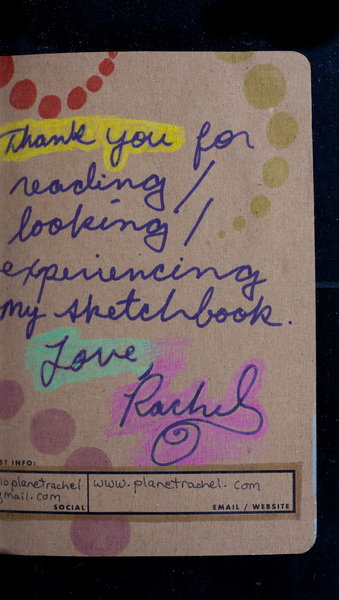 Thank you for
reading /
looking /
experiencing
my sketchbook.
Love,
Rachel
ST INFO:
loplanetrachel
gmail.com
SOCIAL
www.planetrachel.com
EMAIL / WEBSITE